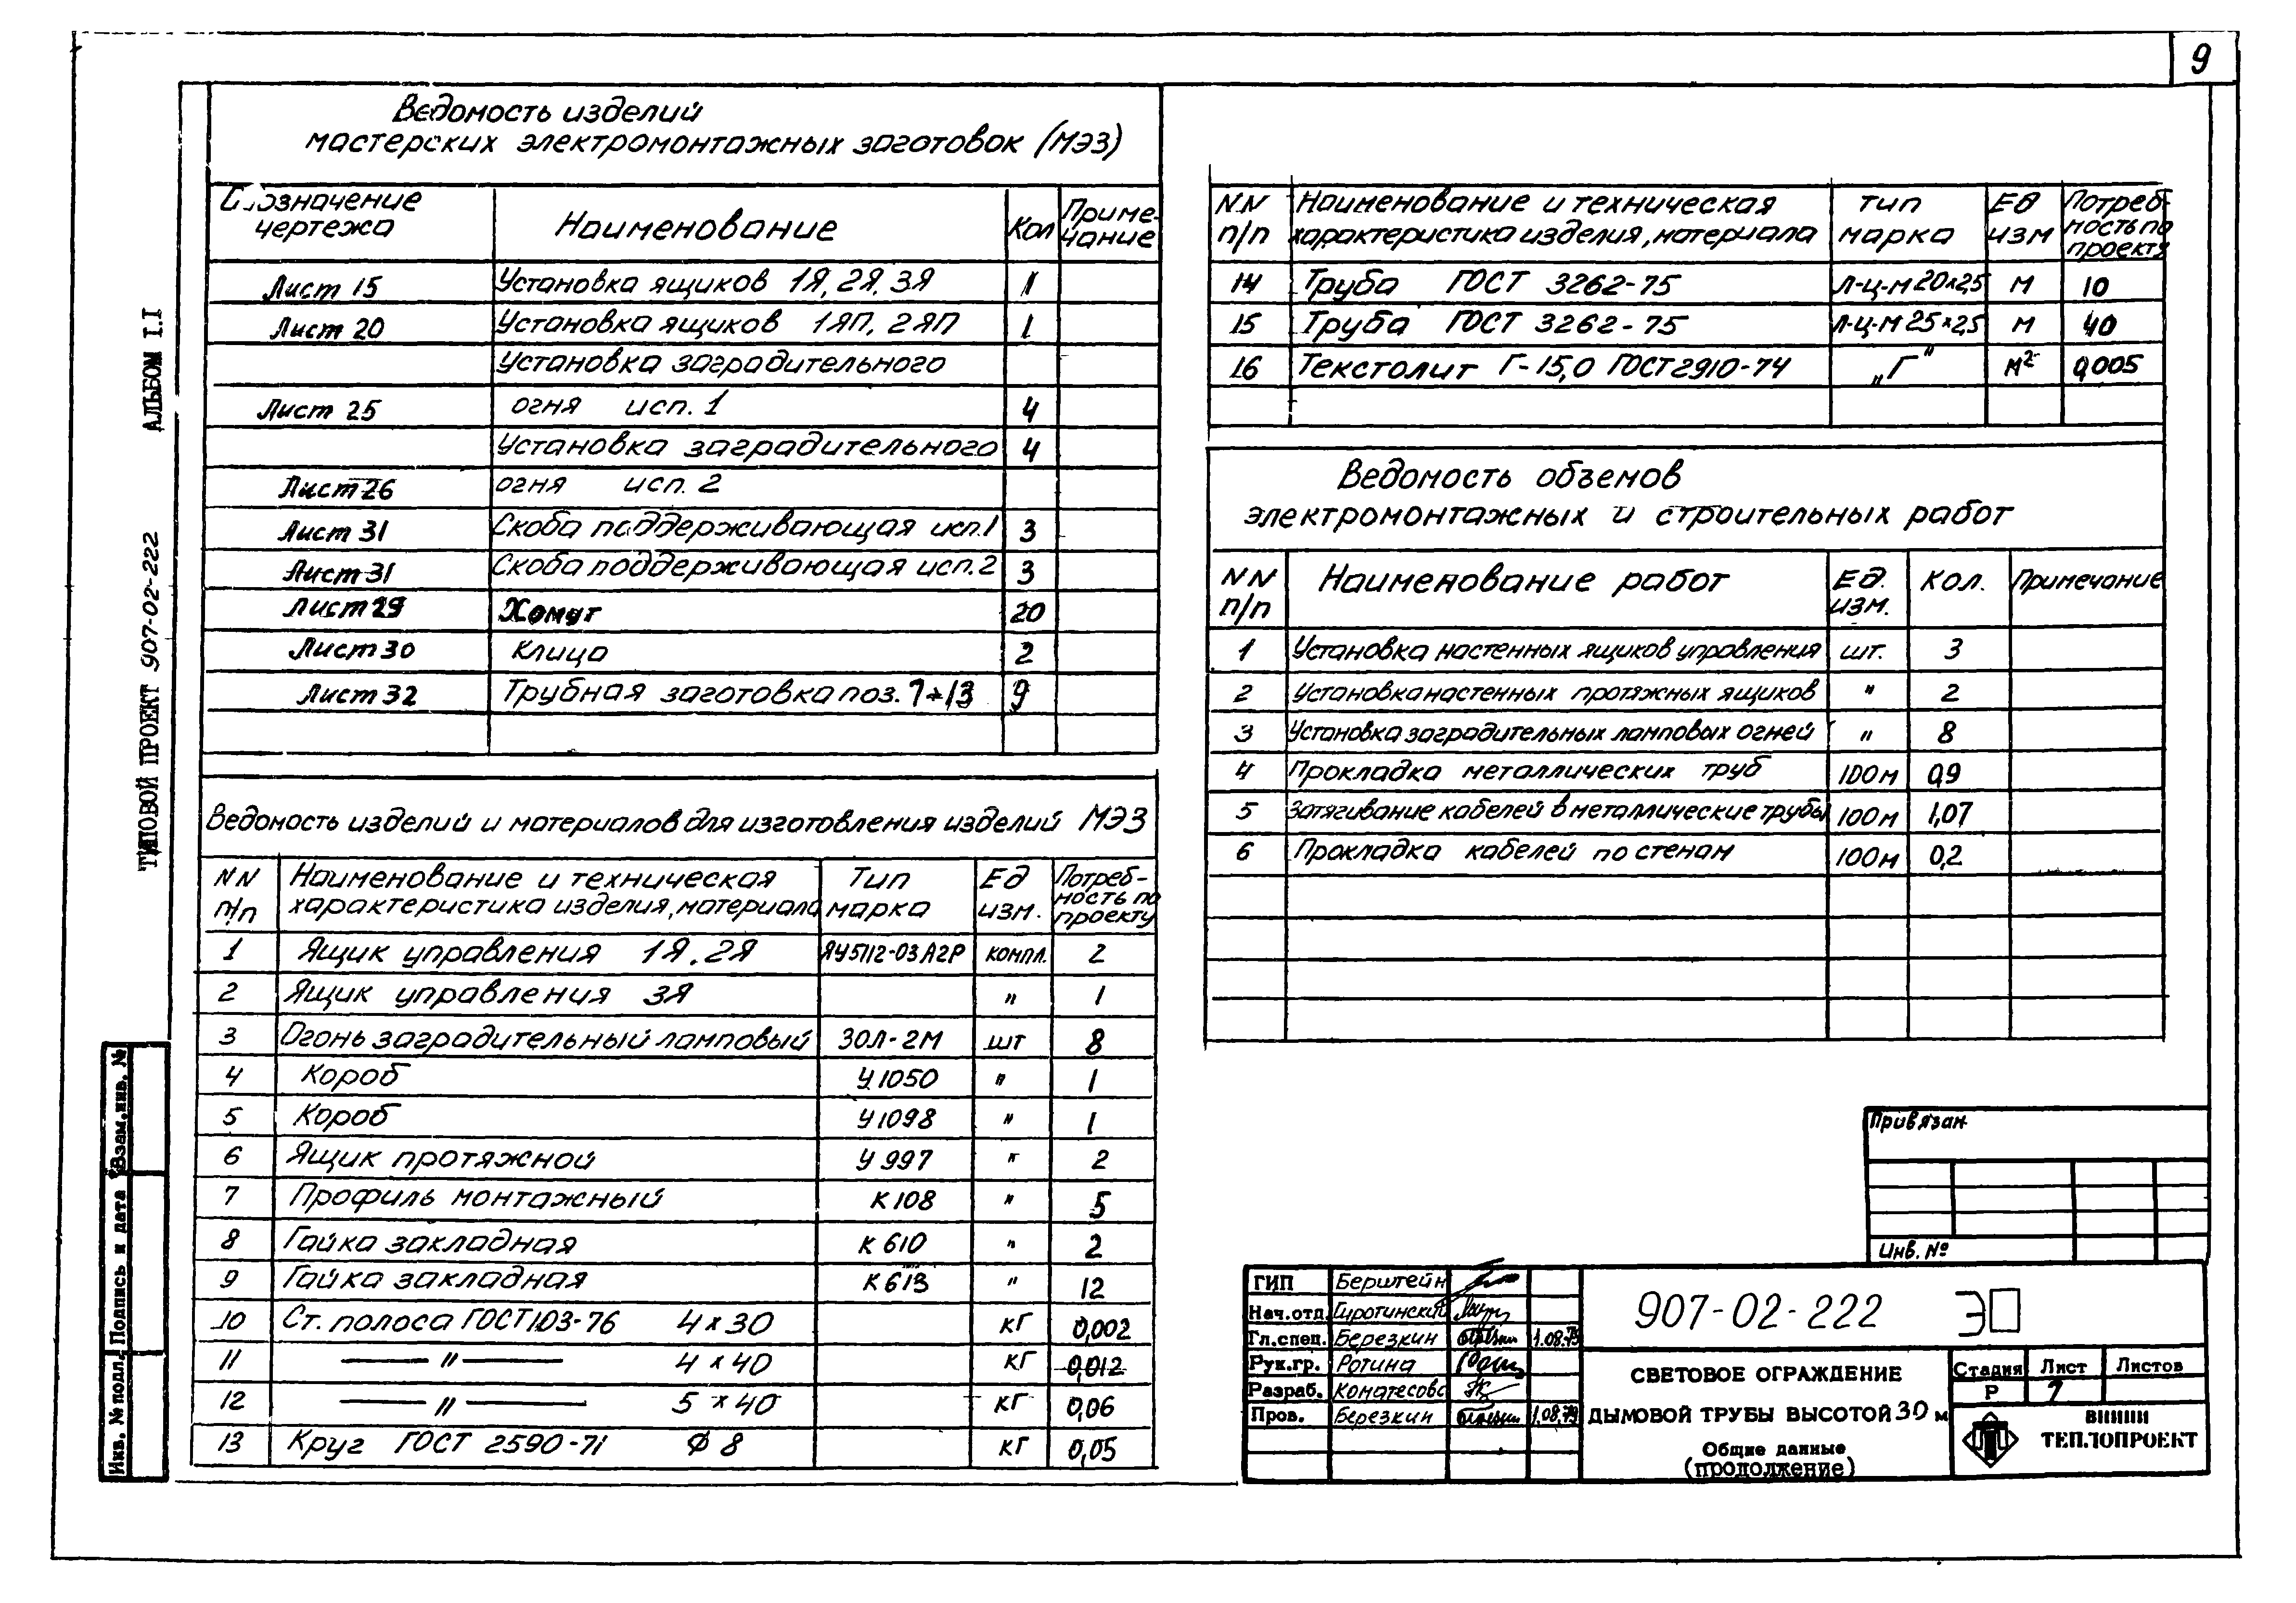 9
Ведомость изделий
мастерских электромонтажных заготовок (МЭЗ)
Обозначение чертежа Наименование Кол Примечание
Лист 15 Установка ящиков 1Я, 2Я, 3Я 1
Лист 20 Установка ящиков 1ЯП, 2ЯП 1
Установка заградительного
Лист 25 огня исп. 1 4
Установка заградительного 4
Лист 26 огня исп. 2
Лист 31 Скоба поддерживающая исп.1 3
Лист 31 Скоба поддерживающая исп.2 3
Лист 29 Хомут 20
Лист 30 Клица 2
Лист 32 Трубная заготовка поз. 7÷13 9
Ведомость изделий и материалов для изготовления изделий МЭЗ
NN п/п Наименование и техническая характеристика изделия, материала Тип марка Ед изм. Потребность по проекту
1 Ящик управления 1Я, 2Я ЯУ5112-03А2Р компл. 2
2 Ящик управления 3Я " 1
3 Огонь заградительный ламповый ЗОЛ-2М шт 8
4 Короб У1050 " 1
5 Короб У1098 " 1
6 Ящик протяжной У 997 " 2
7 Профиль монтажный К 108 " 5
8 Гайка закладная К 610 " 2
9 Гайка закладная К 613 " 12
10 Ст. полоса ГОСТ 103-76 4 x 30 кг 0,002
11 — " — 4 x 40 кг 0,012
12 — " — 5 x 40 кг 0,06
13 Круг ГОСТ 2590-71 Ф 8 кг 0,05
NN п/п Наименование и техническая характеристика изделия, материала тип марка Ед изм Потребность по проекту
14 Труба ГОСТ 3262-75 Л-Ц-М 20x2,5 м 10
15 Труба ГОСТ 3262-75 Л-Ц-М 25x2,5 м 40
16 Текстолит Г-15,0 ГОСТ 2910-74 „Г" м² 0,005
Ведомость объемов
электромонтажных и строительных работ
NN п/п Наименование работ Ед. изм. Кол. Примечание
1 Установка настенных ящиков управления шт. 3
2 Установка настенных протяжных ящиков " 2
3 Установка заградительных ламповых огней " 8
4 Прокладка металлических труб 100 м 0,9
5 Затягивание кабелей в металлические трубы 100 м 1,07
6 Прокладка кабелей по стенам 100 м 0,2
Привязан
Инв. №
ГИП Берштейн
Нач.отд. Сиротинский
Гл.спец. Березкин 1.08.79
Рук.гр. Ротина
Разраб.
Пров. Березкин 1.08.79
907-02-222 Э
СВЕТОВОЕ ОГРАЖДЕНИЕ
ДЫМОВОЙ ТРУБЫ ВЫСОТОЙ 30 м
Общие данные
(продолжение)
Стадия Лист Листов
Р 7
ВНИПИ
ТЕПЛОПРОЕКТ
ТИПОВОЙ ПРОЕКТ 907-02-222 АЛЬБОМ I.I
Инв. № подл. Подпись и дата Взам.инв. №